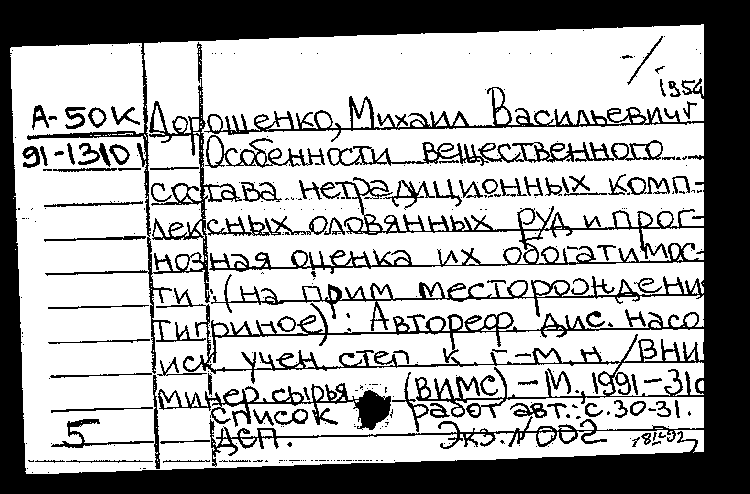 1954
А-50К Дорошенко, Михаил Васильевич
91-13101 Особенности вещественного
состава нетрадиционных комп-
лексных оловянных руд и прог-
нозная оценка их обогатимос-
ти : (на прим месторождени
тигриное) : Автореф. дис. насо
иск. учен. степ. к. г.-м. н. / ВНИ
минер. сырья (ВИМС). - М., 1991. - 31с
список работ авт.: с. 30-31.
5 ДСП. Экз. № 002